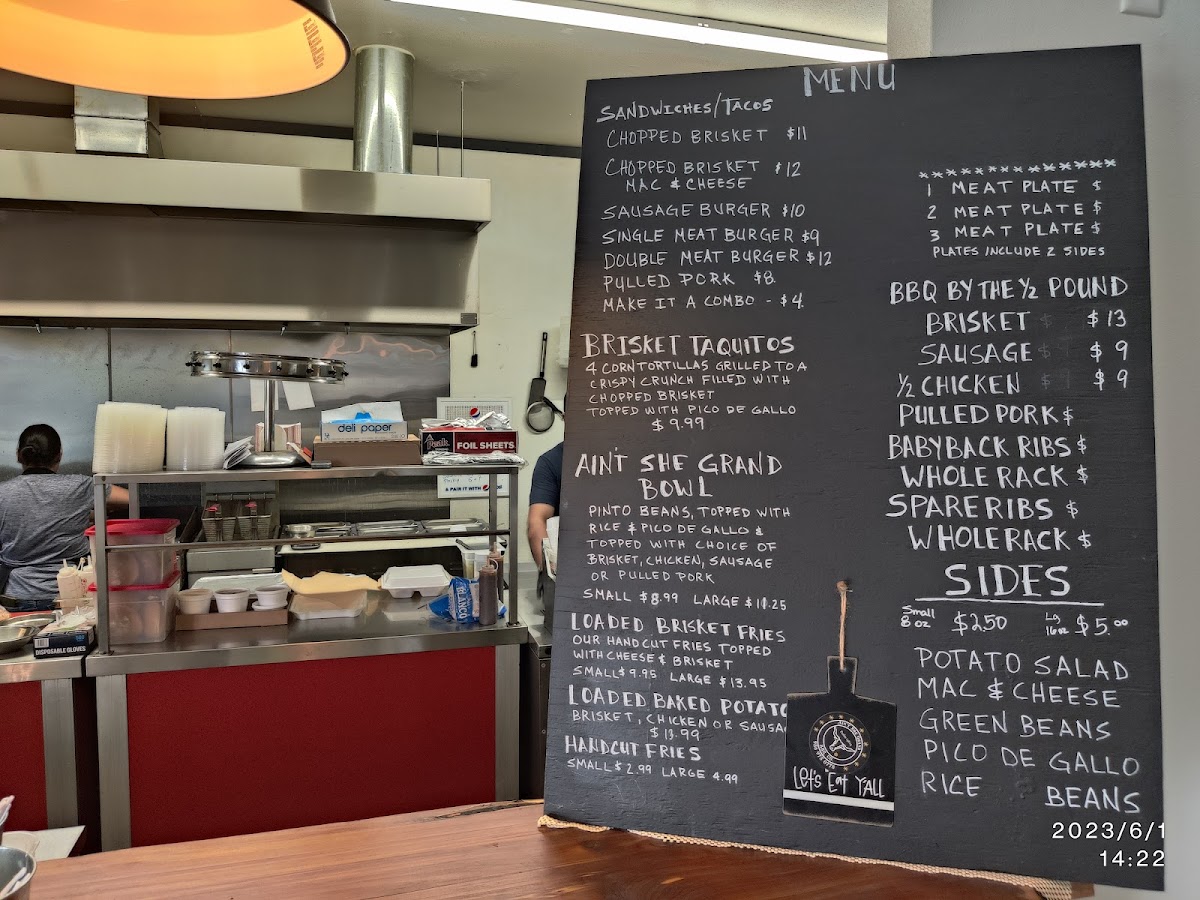 MENU
SANDWICHES/TACOS
CHOPPED BRISKET $11
CHOPPED BRISKET $12
MAC & CHEESE
SAUSAGE BURGER $10
SINGLE MEAT BURGER $9
DOUBLE MEAT BURGER $12
PULLED PORK $8
MAKE IT A COMBO - $4
BRISKET TAQUITOS
4 CORN TORTILLAS GRILLED TO A
CRISPY CRUNCH FILLED WITH
CHOPPED BRISKET
TOPPED WITH PICO DE GALLO
$9.99
AIN'T SHE GRAND
BOWL
PINTO BEANS, TOPPED WITH
RICE & PICO DE GALLO &
TOPPED WITH CHOICE OF
BRISKET, CHICKEN, SAUSAGE
OR PULLED PORK
SMALL $8.99 LARGE $11.25
LOADED BRISKET FRIES
OUR HANDCUT FRIES TOPPED
WITH CHEESE & BRISKET
SMALL $9.95 LARGE $13.95
LOADED BAKED POTATO
BRISKET, CHICKEN OR SAUSAG
$13.99
HANDCUT FRIES
SMALL $2.99 LARGE 4.99
*****************
1 MEAT PLATE $
2 MEAT PLATE $
3 MEAT PLATE $
PLATES INCLUDE 2 SIDES
BBQ BY THE ½ POUND
BRISKET $13
SAUSAGE $9
½ CHICKEN $9
PULLED PORK $
BABYBACK RIBS $
WHOLE RACK $
SPARE RIBS $
WHOLE RACK $
SIDES
Small 8 oz $2.50 Lg 16oz $5.00
POTATO SALAD
MAC & CHEESE
GREEN BEANS
PICO DE GALLO
RICE BEANS
Let's Eat Y'ALL
deli paper
FOIL SHEETS
A PAIR IT WITH
BLANCO
DISPOSABLE GLOVES
2023/6/1
14:22